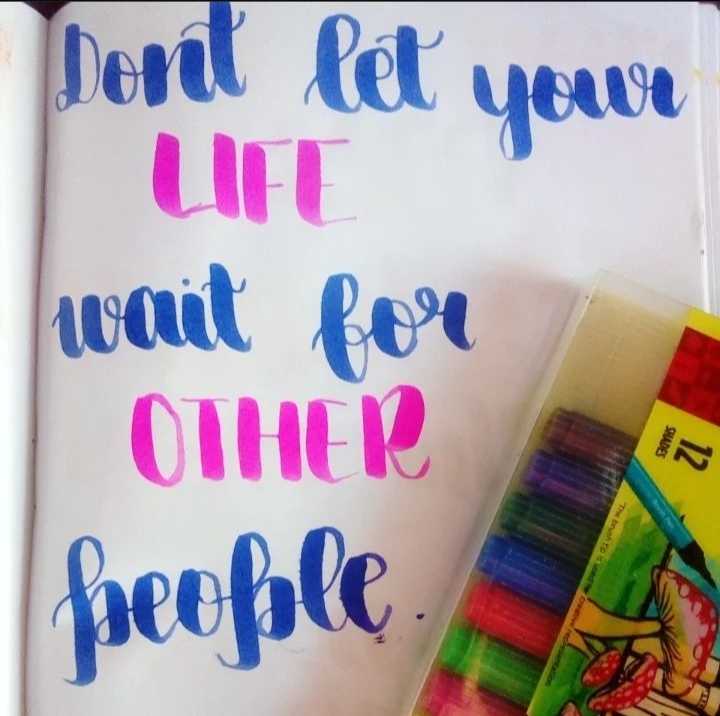 Dont let your
LIFE
wait for
OTHER
people.
12
SHADES